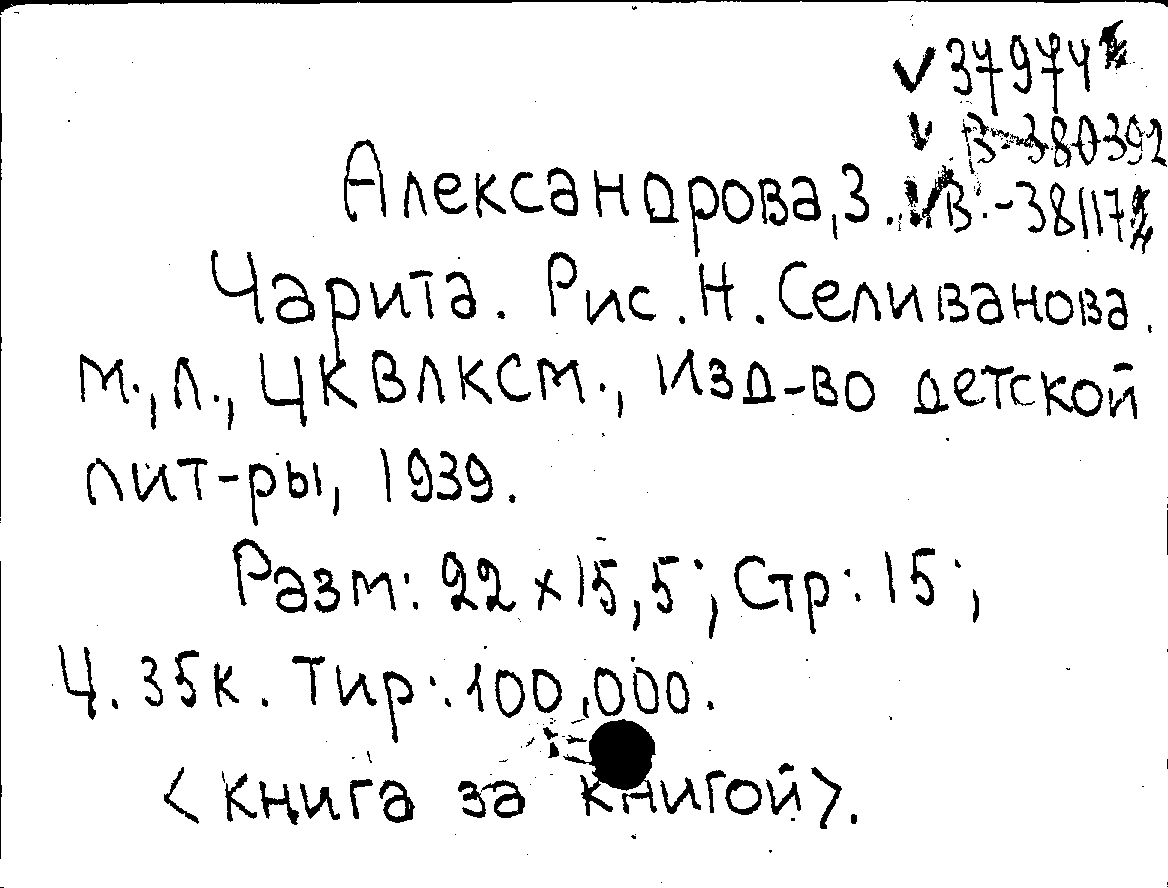 ✓ 37974
✓ В-380392
Александрова, З. ✓ В.-38117
Чарита. Рис. Н. Селиванова.
М., Л., ЦК ВЛКСМ., Изд-во детской
лит-ры, 1939.
Разм: 22 x 15,5; Стр: 15;
Ц. 35к. Тир: 100.000.
<книга за книгой>.